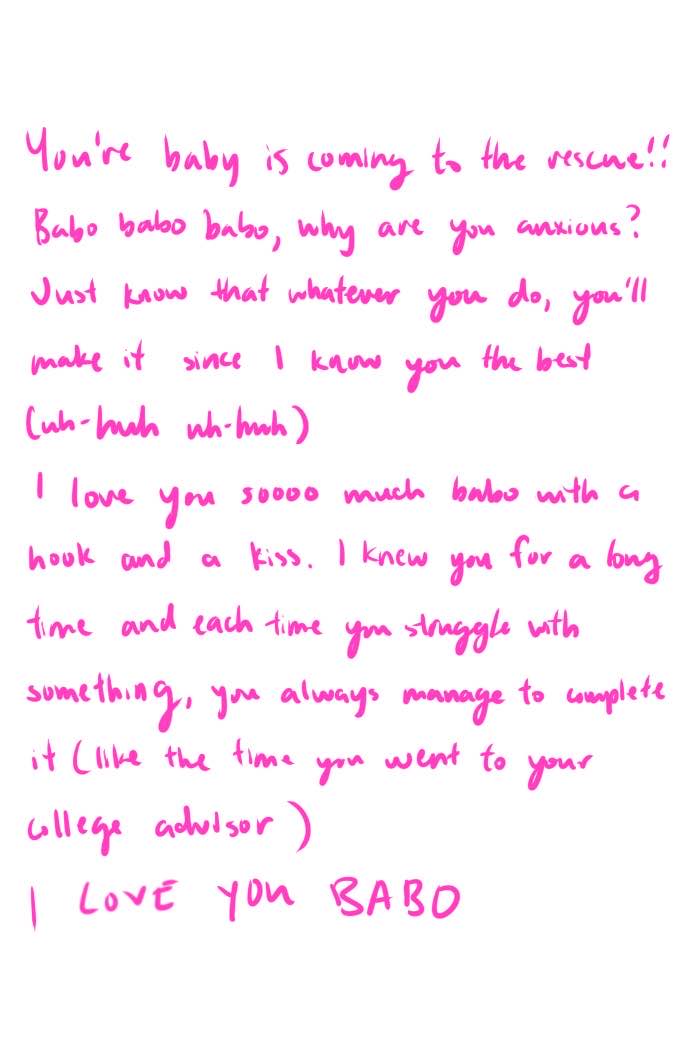 You're baby is coming to the rescue!!
Babo babo babo, why are you anxious?
Just know that whatever you do, you'll
make it since I know you the best
(uh-huh uh-huh)
I love you soooo much babo with a
hook and a kiss. I knew you for a long
time and each time you struggle with
something, you always manage to complete
it (like the time you went to your
college advisor)
I LOVE YOU BABO